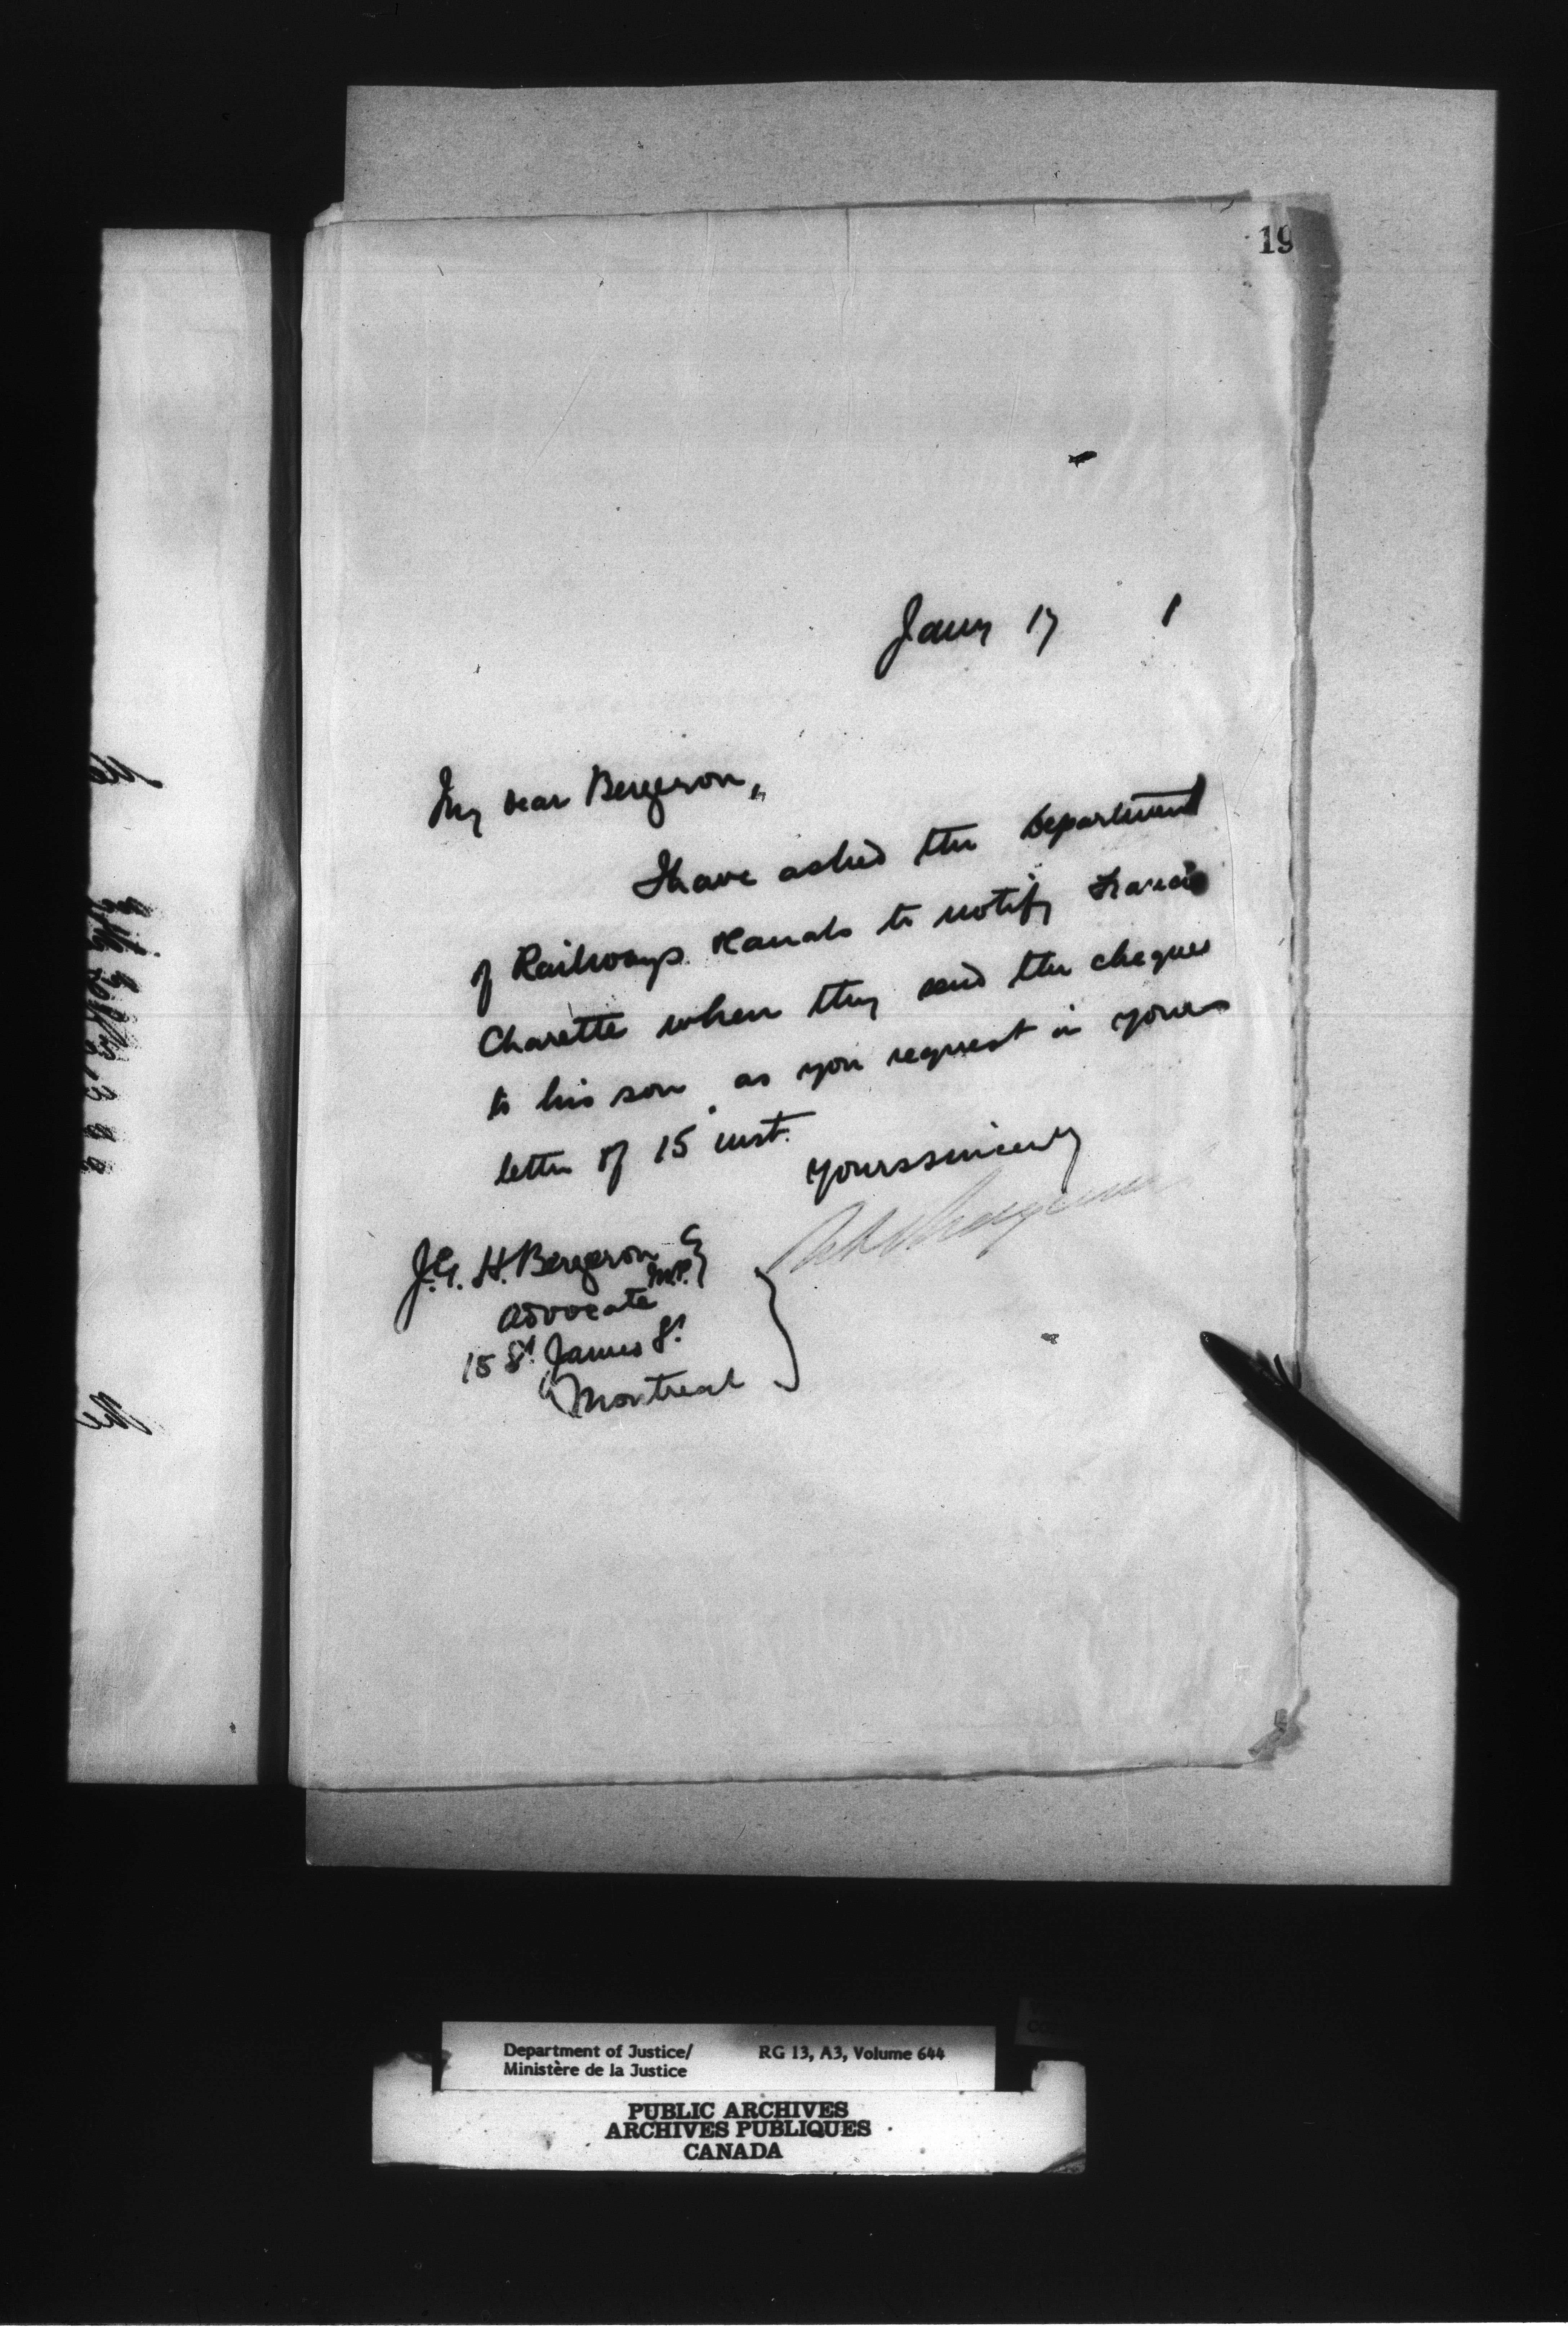 19
Jany 17 1
My dear Bergeron,
I have asked the Department
of Railways & Canals to notify Francis
Charette when they send the cheques
to his son as you request in yours
letter of 15 inst.
Yours sincerely
J.G. H. Bergeron M.P.
Advocate
15 St. James St.
Montreal
Department of Justice/ RG 13, A3, Volume 644
Ministère de la Justice
PUBLIC ARCHIVES
ARCHIVES PUBLIQUES
CANADA